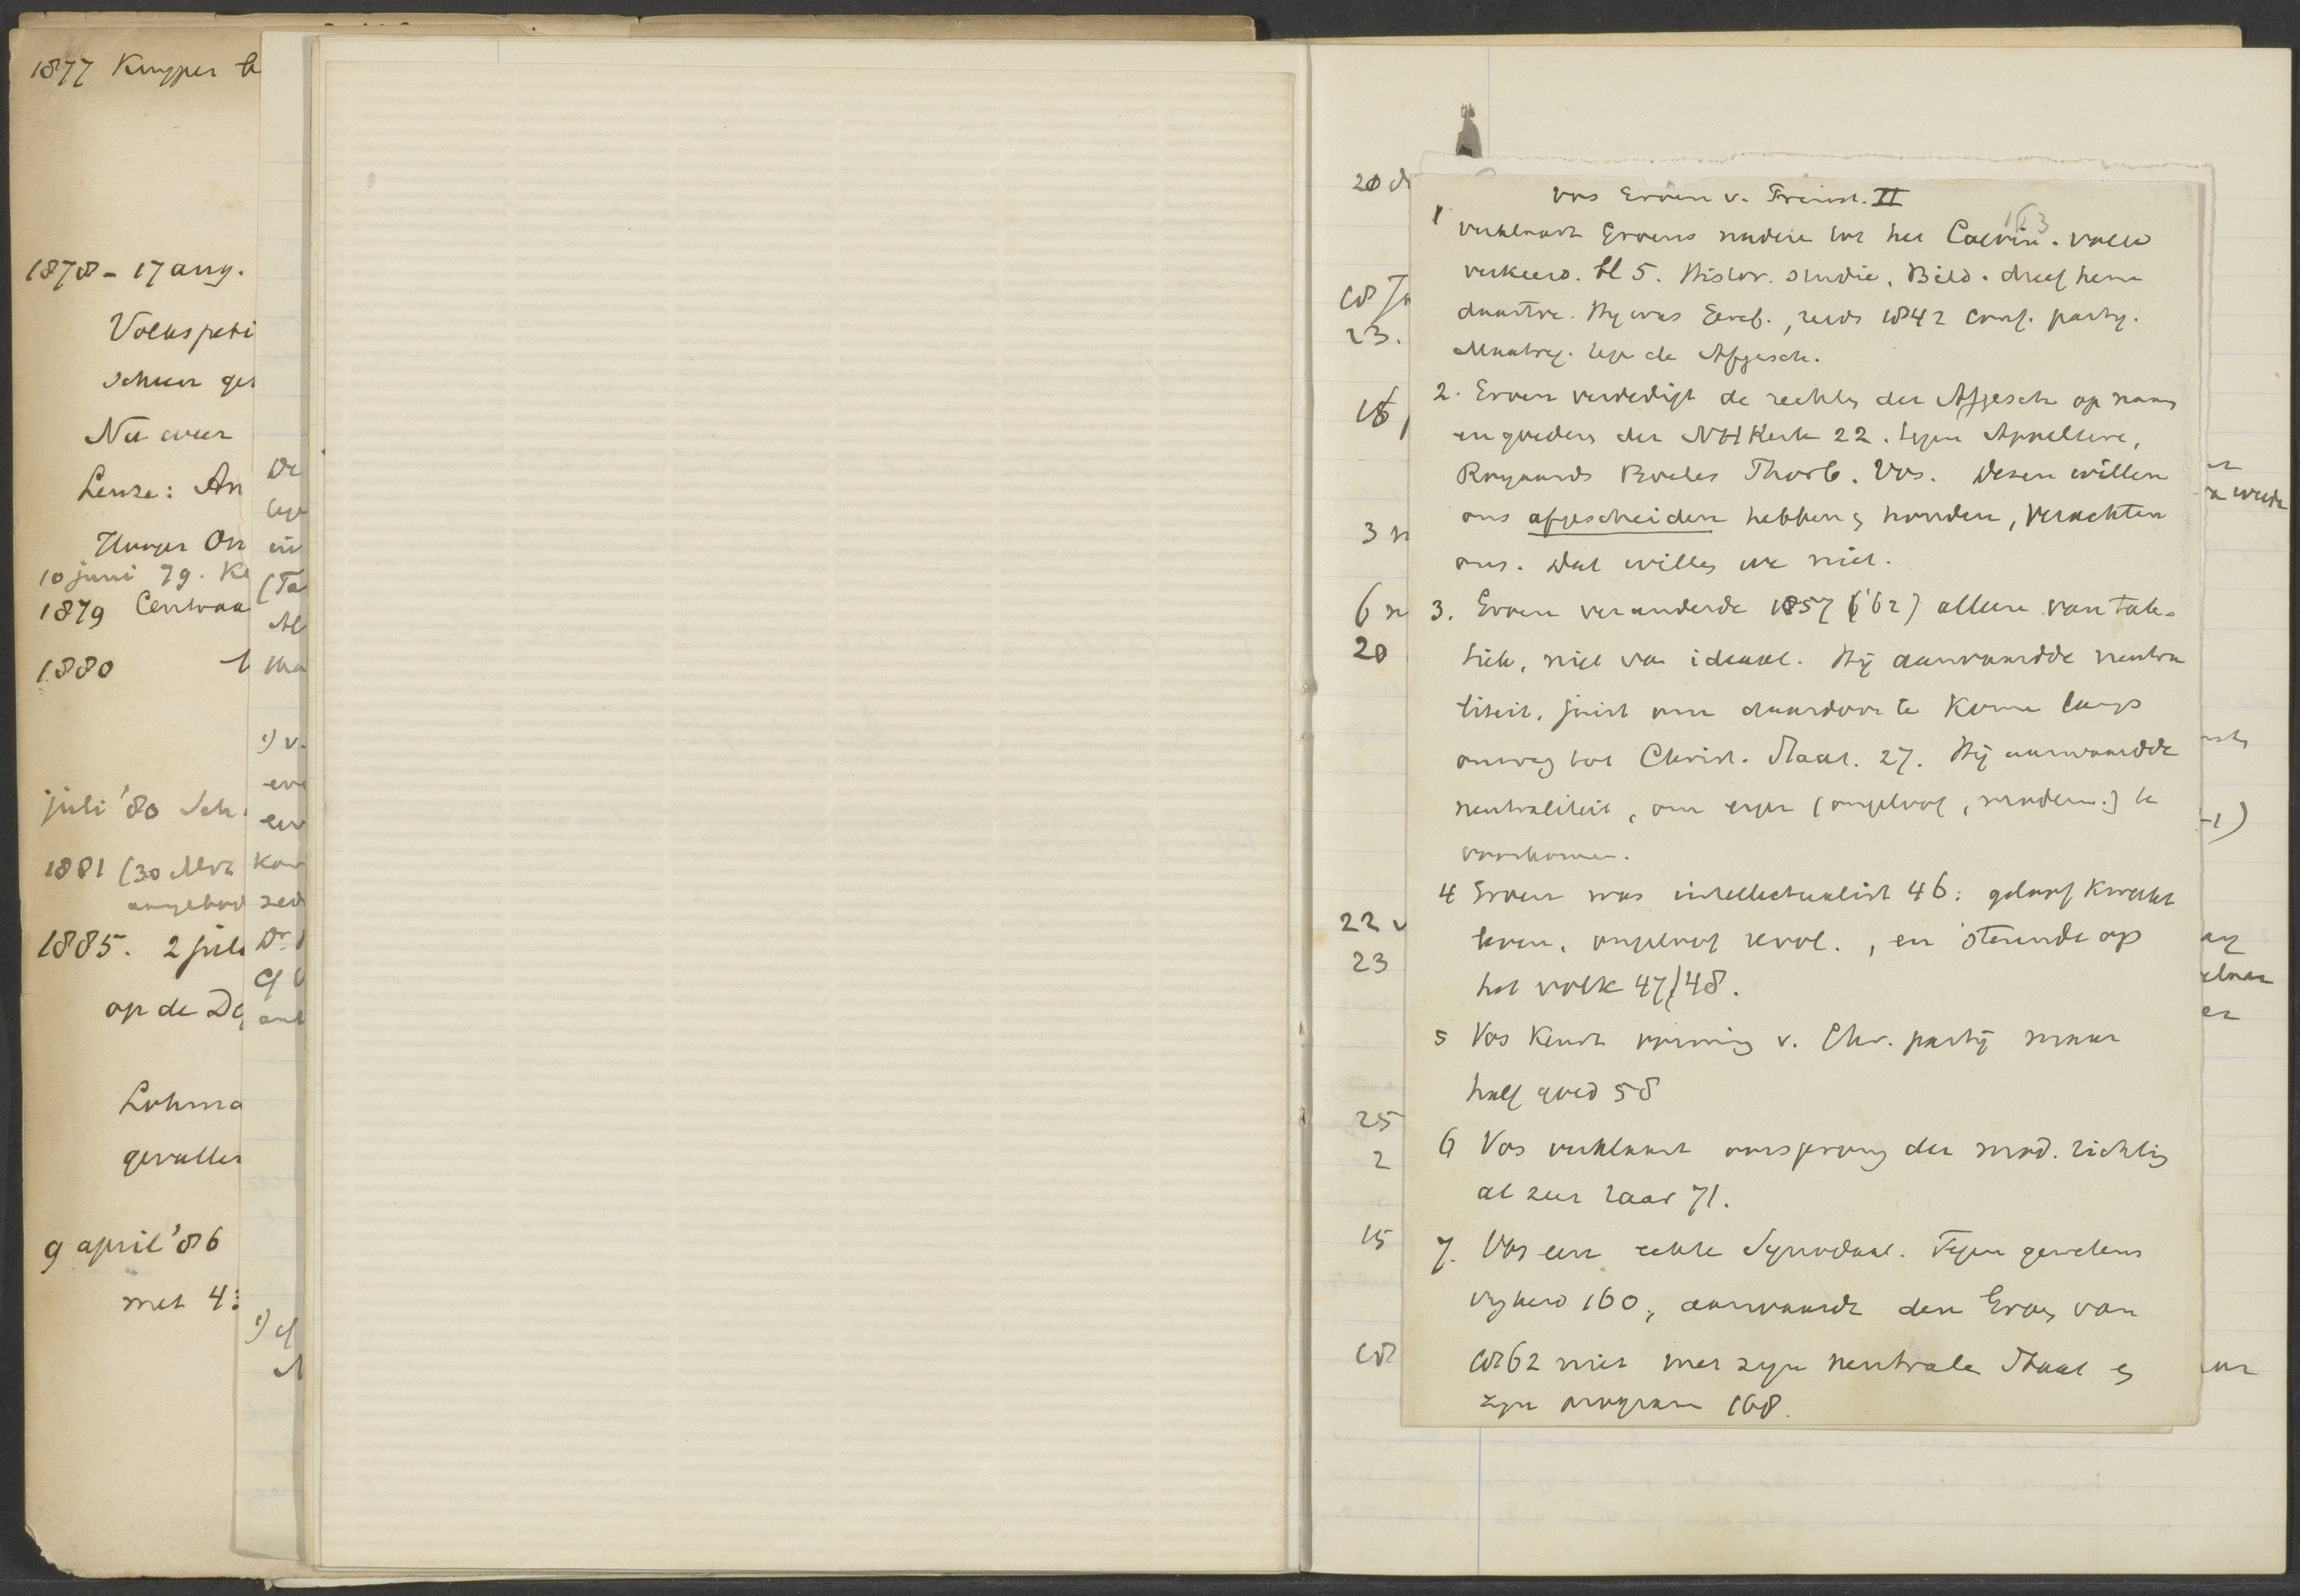 1877 Kuyper b
1878 - 17 aug.
Volkspeti
schuur ges
Nu weer
Leuze: An
Hunger On
10 juni 79. Ke
1879 Centraa
1880
juli '80 Sch
1881 (30 Mrt
aangebod
1885. 2 juli
op de De
Lohma
gevallen
9 april '86
met 4
De
in
(Ta
Al
1) v.
en
kon
zed
Dr.
cf
1) cf
20 d
18 Ja
23.
18
3 n
6 n
20
22 v
23
25
2
15
18
Vos Groen v. Prinst. II
163
1 verklaart Groens nadere tot het Calvin. volk
verkeerd. bl 5. Histor. studie, Bild. dreef hem
daartoe. Hij was Geref., reeds 1842 conf. party.
Maatreg. tege de Afgesch.
2. Groen verdedigt de rechten der Afgesch op naam
en goederen der NH Kerk 22. tegen Appeltere,
Royaards Boeles Thorb. Vos. Dezen willen
ons afgescheiden hebben en houden, verachten
ons. Dat willen we niet.
3. Groen veranderde 1857 ('62) alleen van tak-
tiek, niet van ideaal. Hij aanvaardde neutra
liteit, juist om daardoor te komen langs
omweg tot Christ. Staat. 27. Hij aanvaardde
neutraliteit, om erger (ongeloof, modern.) te
voorkomen.
4 Groen was intellectualist 46: geloof kweekt
leven, ongeloof revol., en steunde op
het volk 47/48.
5 Vos keurt vorming v. Chr. partij maar
half goed 58
6 Vos verklaart oorsprong der mod. richting
al zeer raar 71.
7. Vos een echte Synodaal. Tegen gewetens
vryheid 160, aanvaardt den Groen van
1862 niet met zyn neutrale Staat en
zyn program 168.